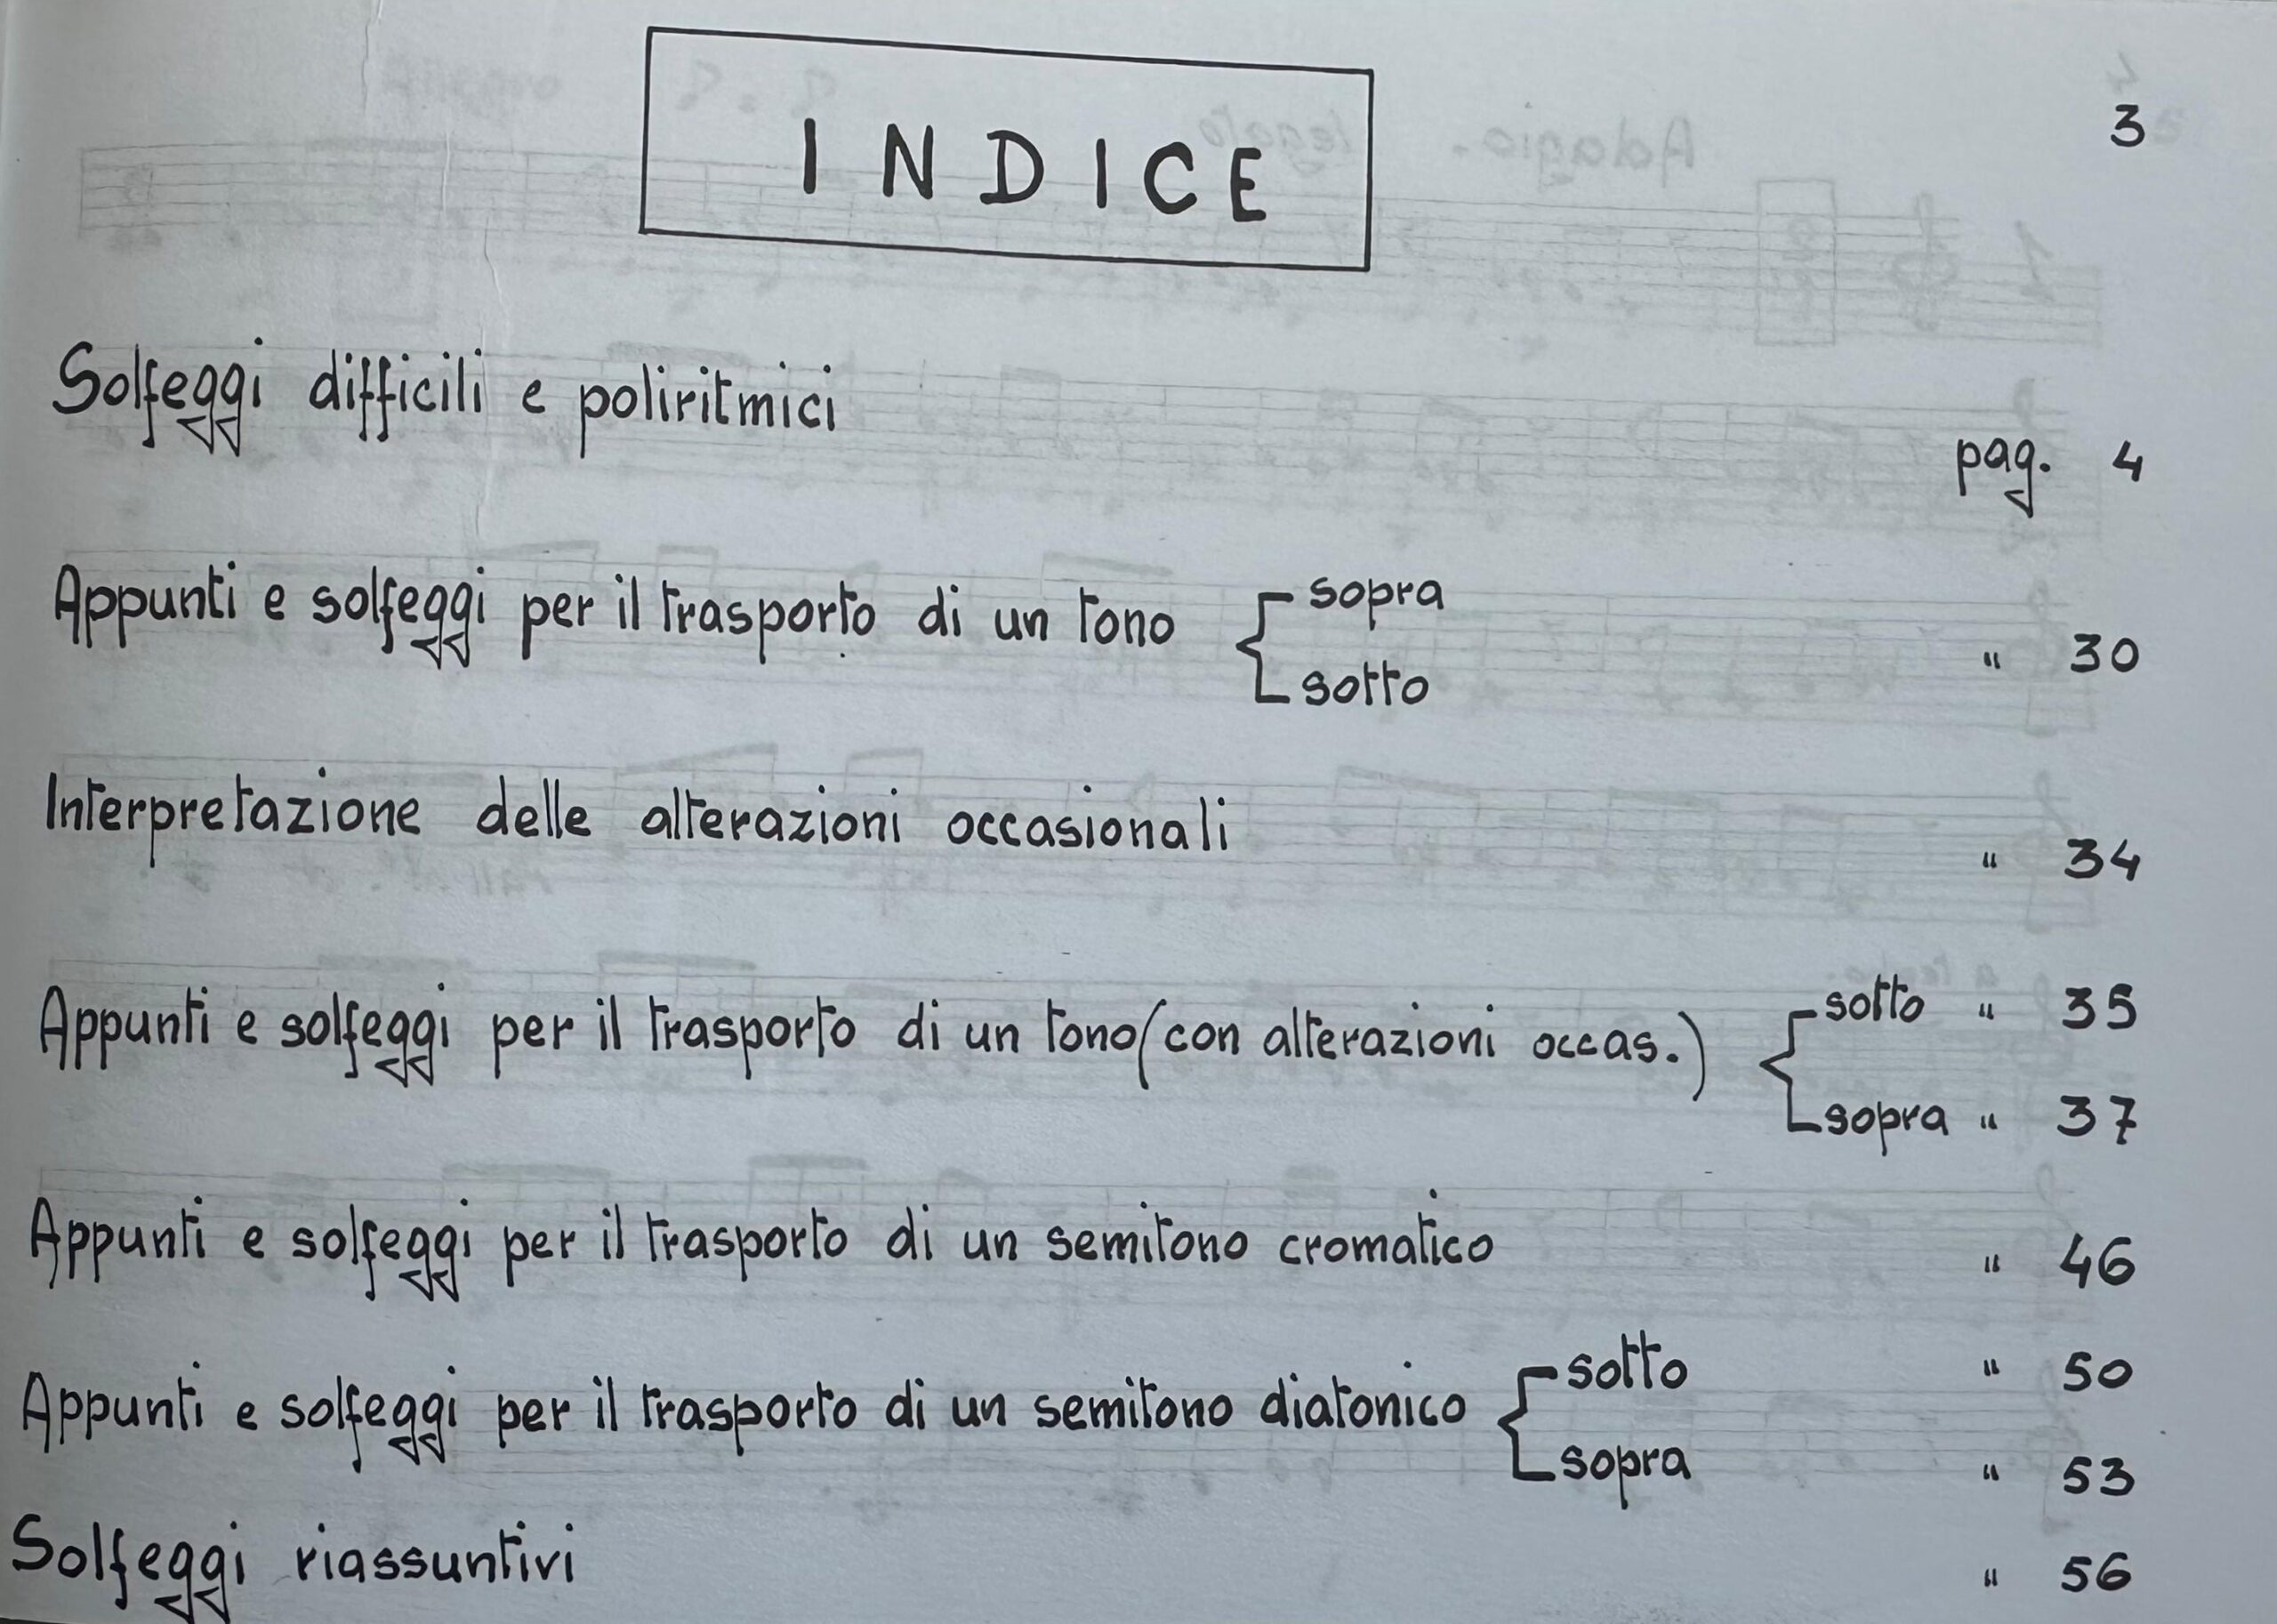 3
INDICE
Solfeggi difficili e poliritmici
pag. 4
Appunti e solfeggi per il trasporto di un tono
sopra
sotto
" 30
Interpretazione delle alterazioni occasionali " 34
Appunti e solfeggi per il trasporto di un tono (con alterazioni occas.)
sotto " 35
sopra " 37
Appunti e solfeggi per il trasporto di un semitono cromatico " 46
Appunti e solfeggi per il trasporto di un semitono diatonico
sotto " 50
sopra " 53
Solfeggi riassuntivi " 56